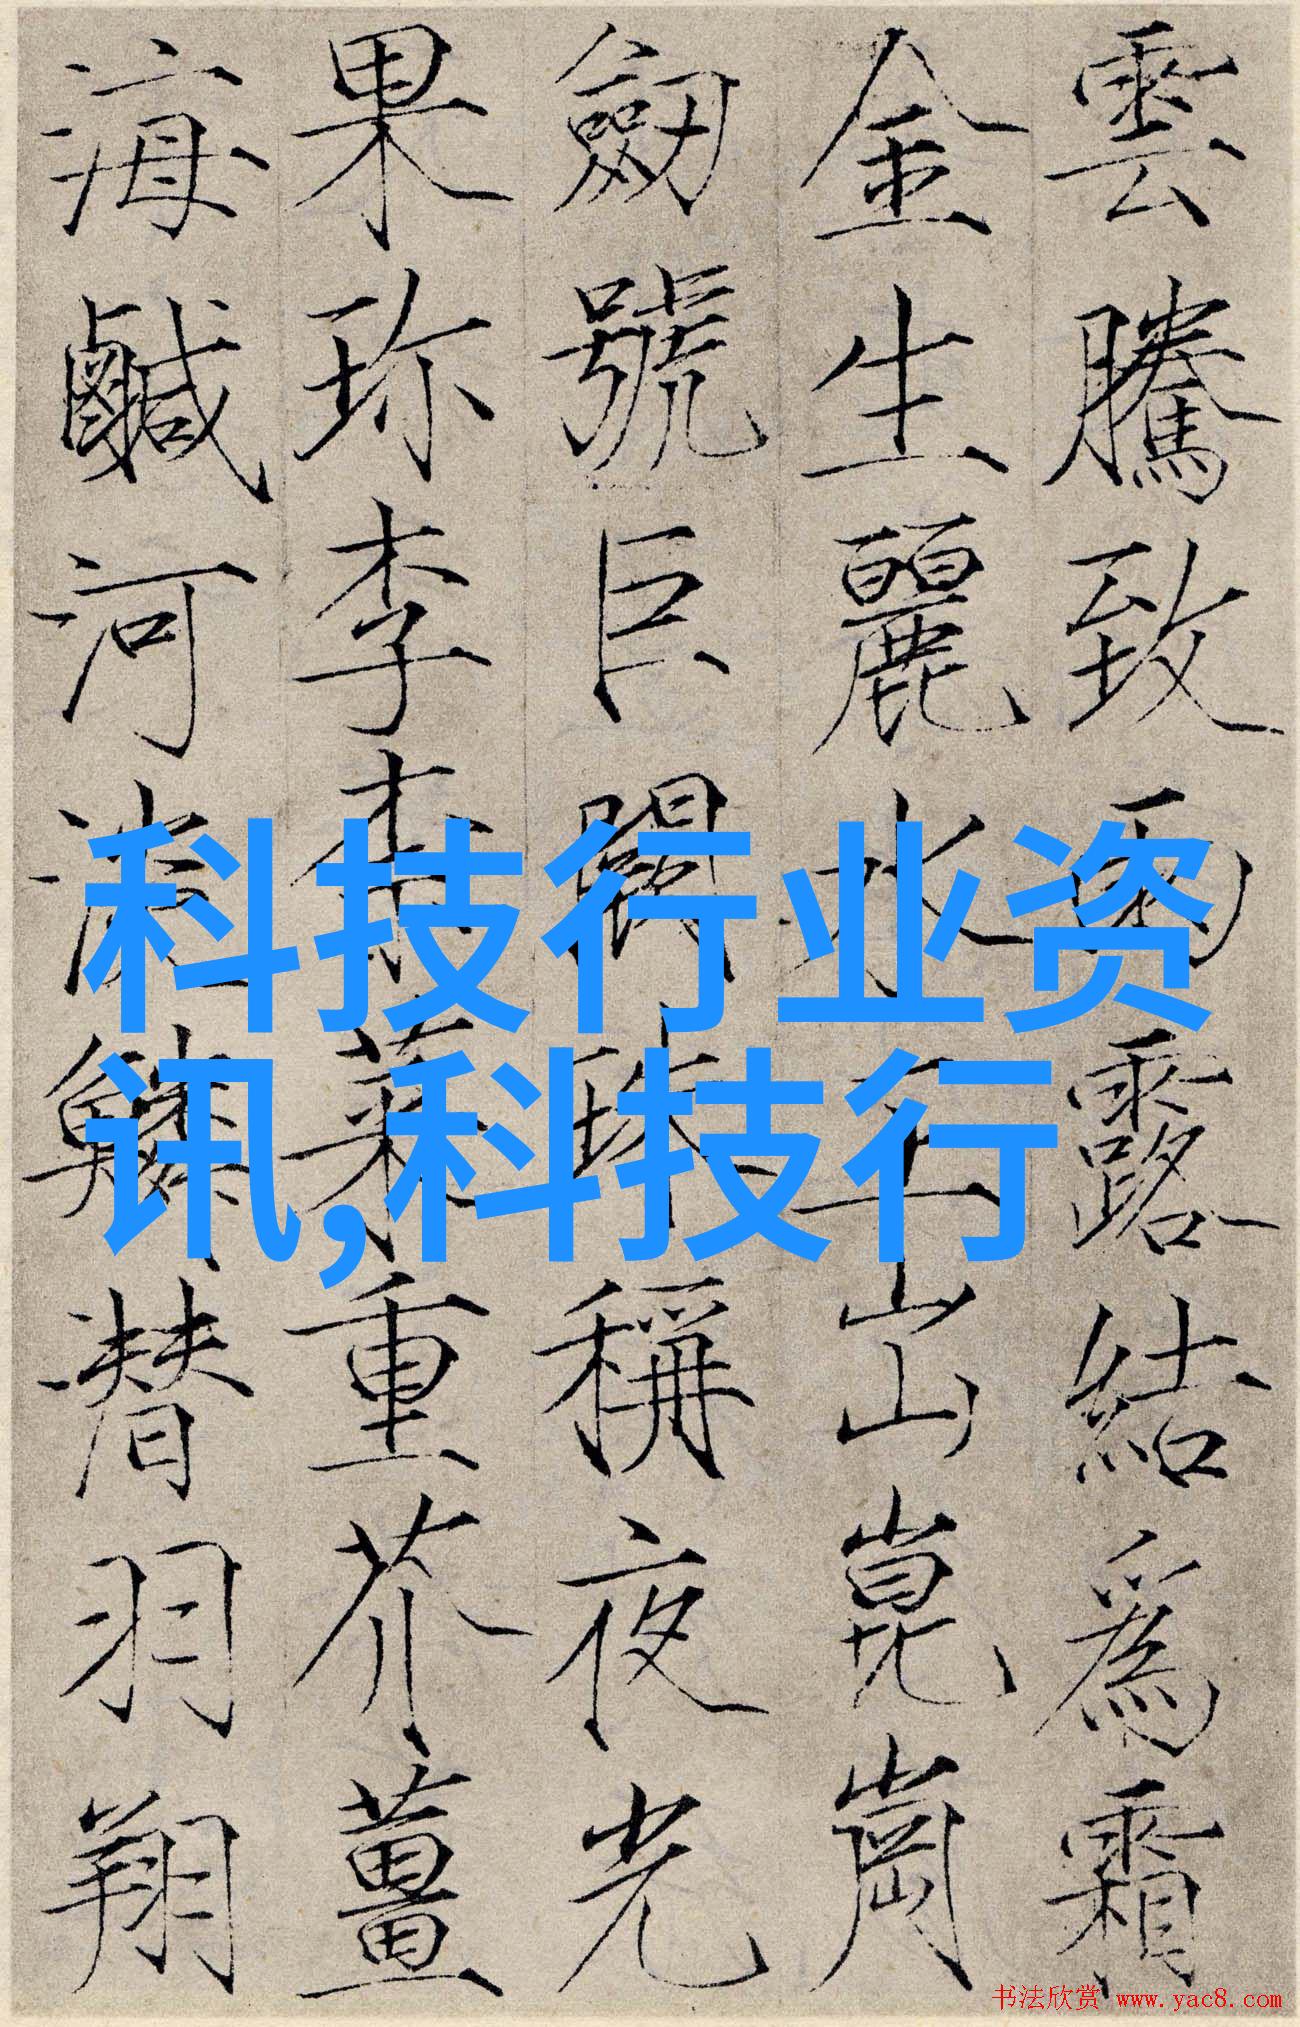 雲騰致雨露結爲霜
金生麗水玉出崑崗
劒號巨闕珠稱夜光
果珎李柰菜重芥薑
海鹹河淡鱗潜羽翔
科技行业资
讯,科技行
书法欣赏 www.yac8.com